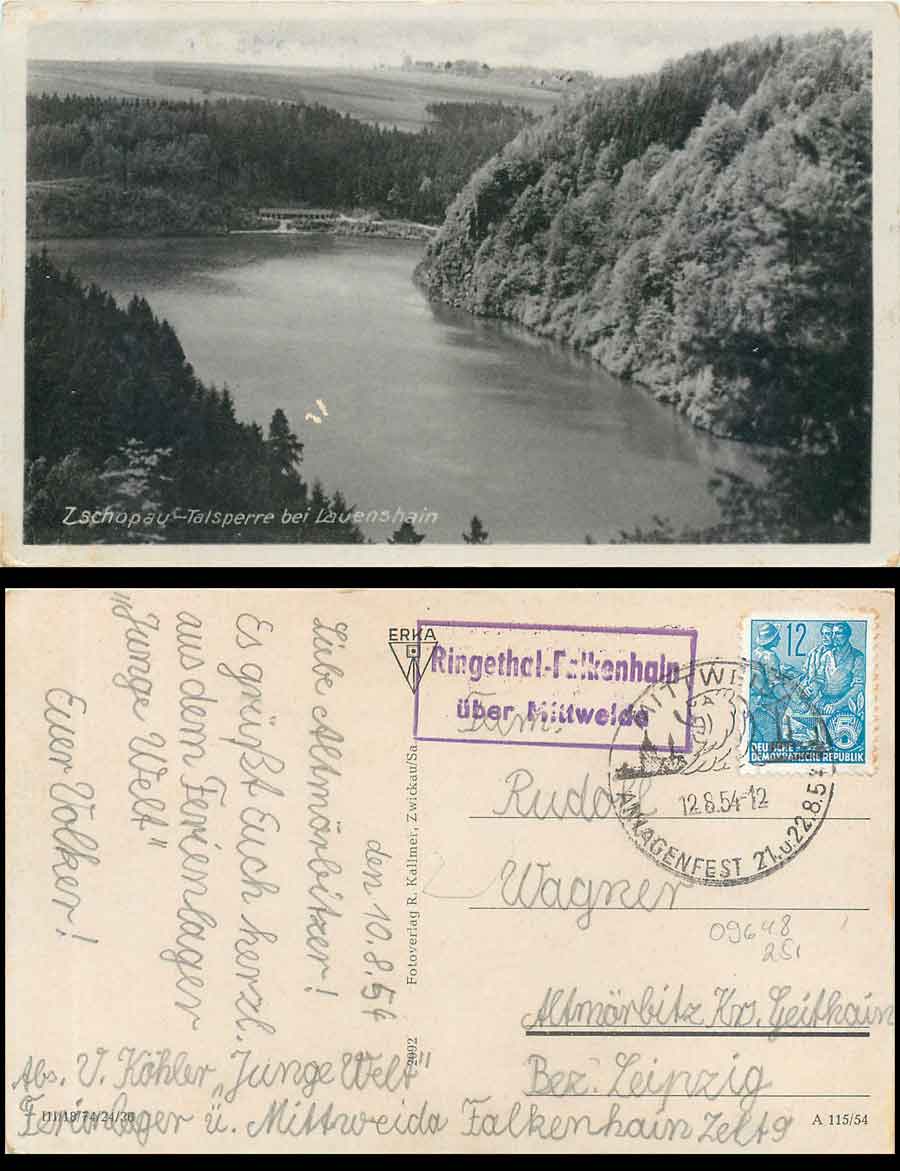 Zschopau-Talsperre bei Lauenshain
den 10.8.54
Liebe Altmörbitzer!
Es grüßt Euch herzl.
aus dem Ferienlager
"Junge Welt"
Euer Volker!
Abs. V. Köhler „Junge Welt"
Ferienlager ü. Mittweida Falkenhain Zelt 9
ERKA
Fotoverlag R. Kallmer, Zwickau/Sa.
2092
III/18/74/24/36
A 115/54
Ringethal-Falkenhain
über Mittweida
MITTWEIDA
12.8.54-12
ANLAGENFEST 21.u.22.8.54
12
5
DEUTSCHE
DEMOKRATISCHE REPUBLIK
Fam.
Rudolf
Wagner
09648
Altmörbitz Krs. Geithain
Bez. Leipzig